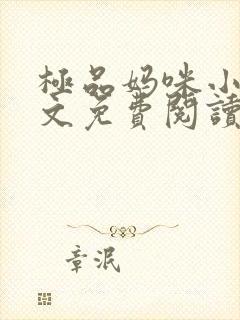 極品妈咪小
文免費閱讀
章泯